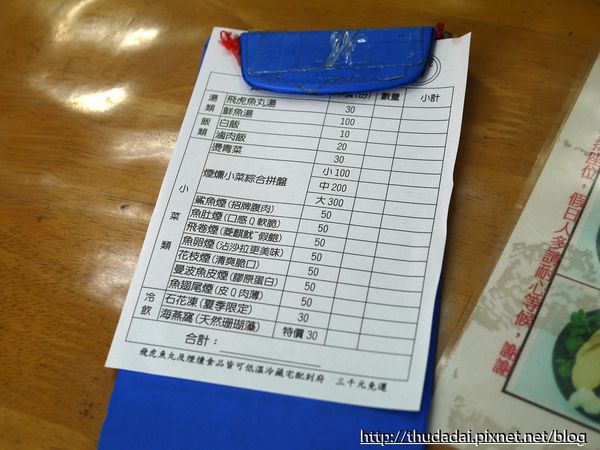 數量 小計
湯類
飛虎魚丸湯 30
鮮魚湯 100
飯類
白飯 10
滷肉飯 20
小菜類
燙青菜 30
煙燻小菜綜合拼盤 小100
中200
大300
鯊魚煙(招牌腹肉) 50
魚肚煙(口感Q軟脆) 50
飛卷煙(菱麒魷~假鮑) 50
魚卵煙(沾沙拉更美味) 50
花枝煙(清爽脆口) 50
曼波魚皮煙(膠原蛋白) 50
魚翅尾煙(皮Q肉薄) 50
冷飲
石花凍(夏季限定) 30
海燕窩(天然珊瑚藻) 特價30
合計:
飛虎魚丸及煙燻食品皆可低溫冷藏宅配到府 三千元免運
座位,假日人多請耐心等候,謝謝
http://thudadai.pixnet.net/blog